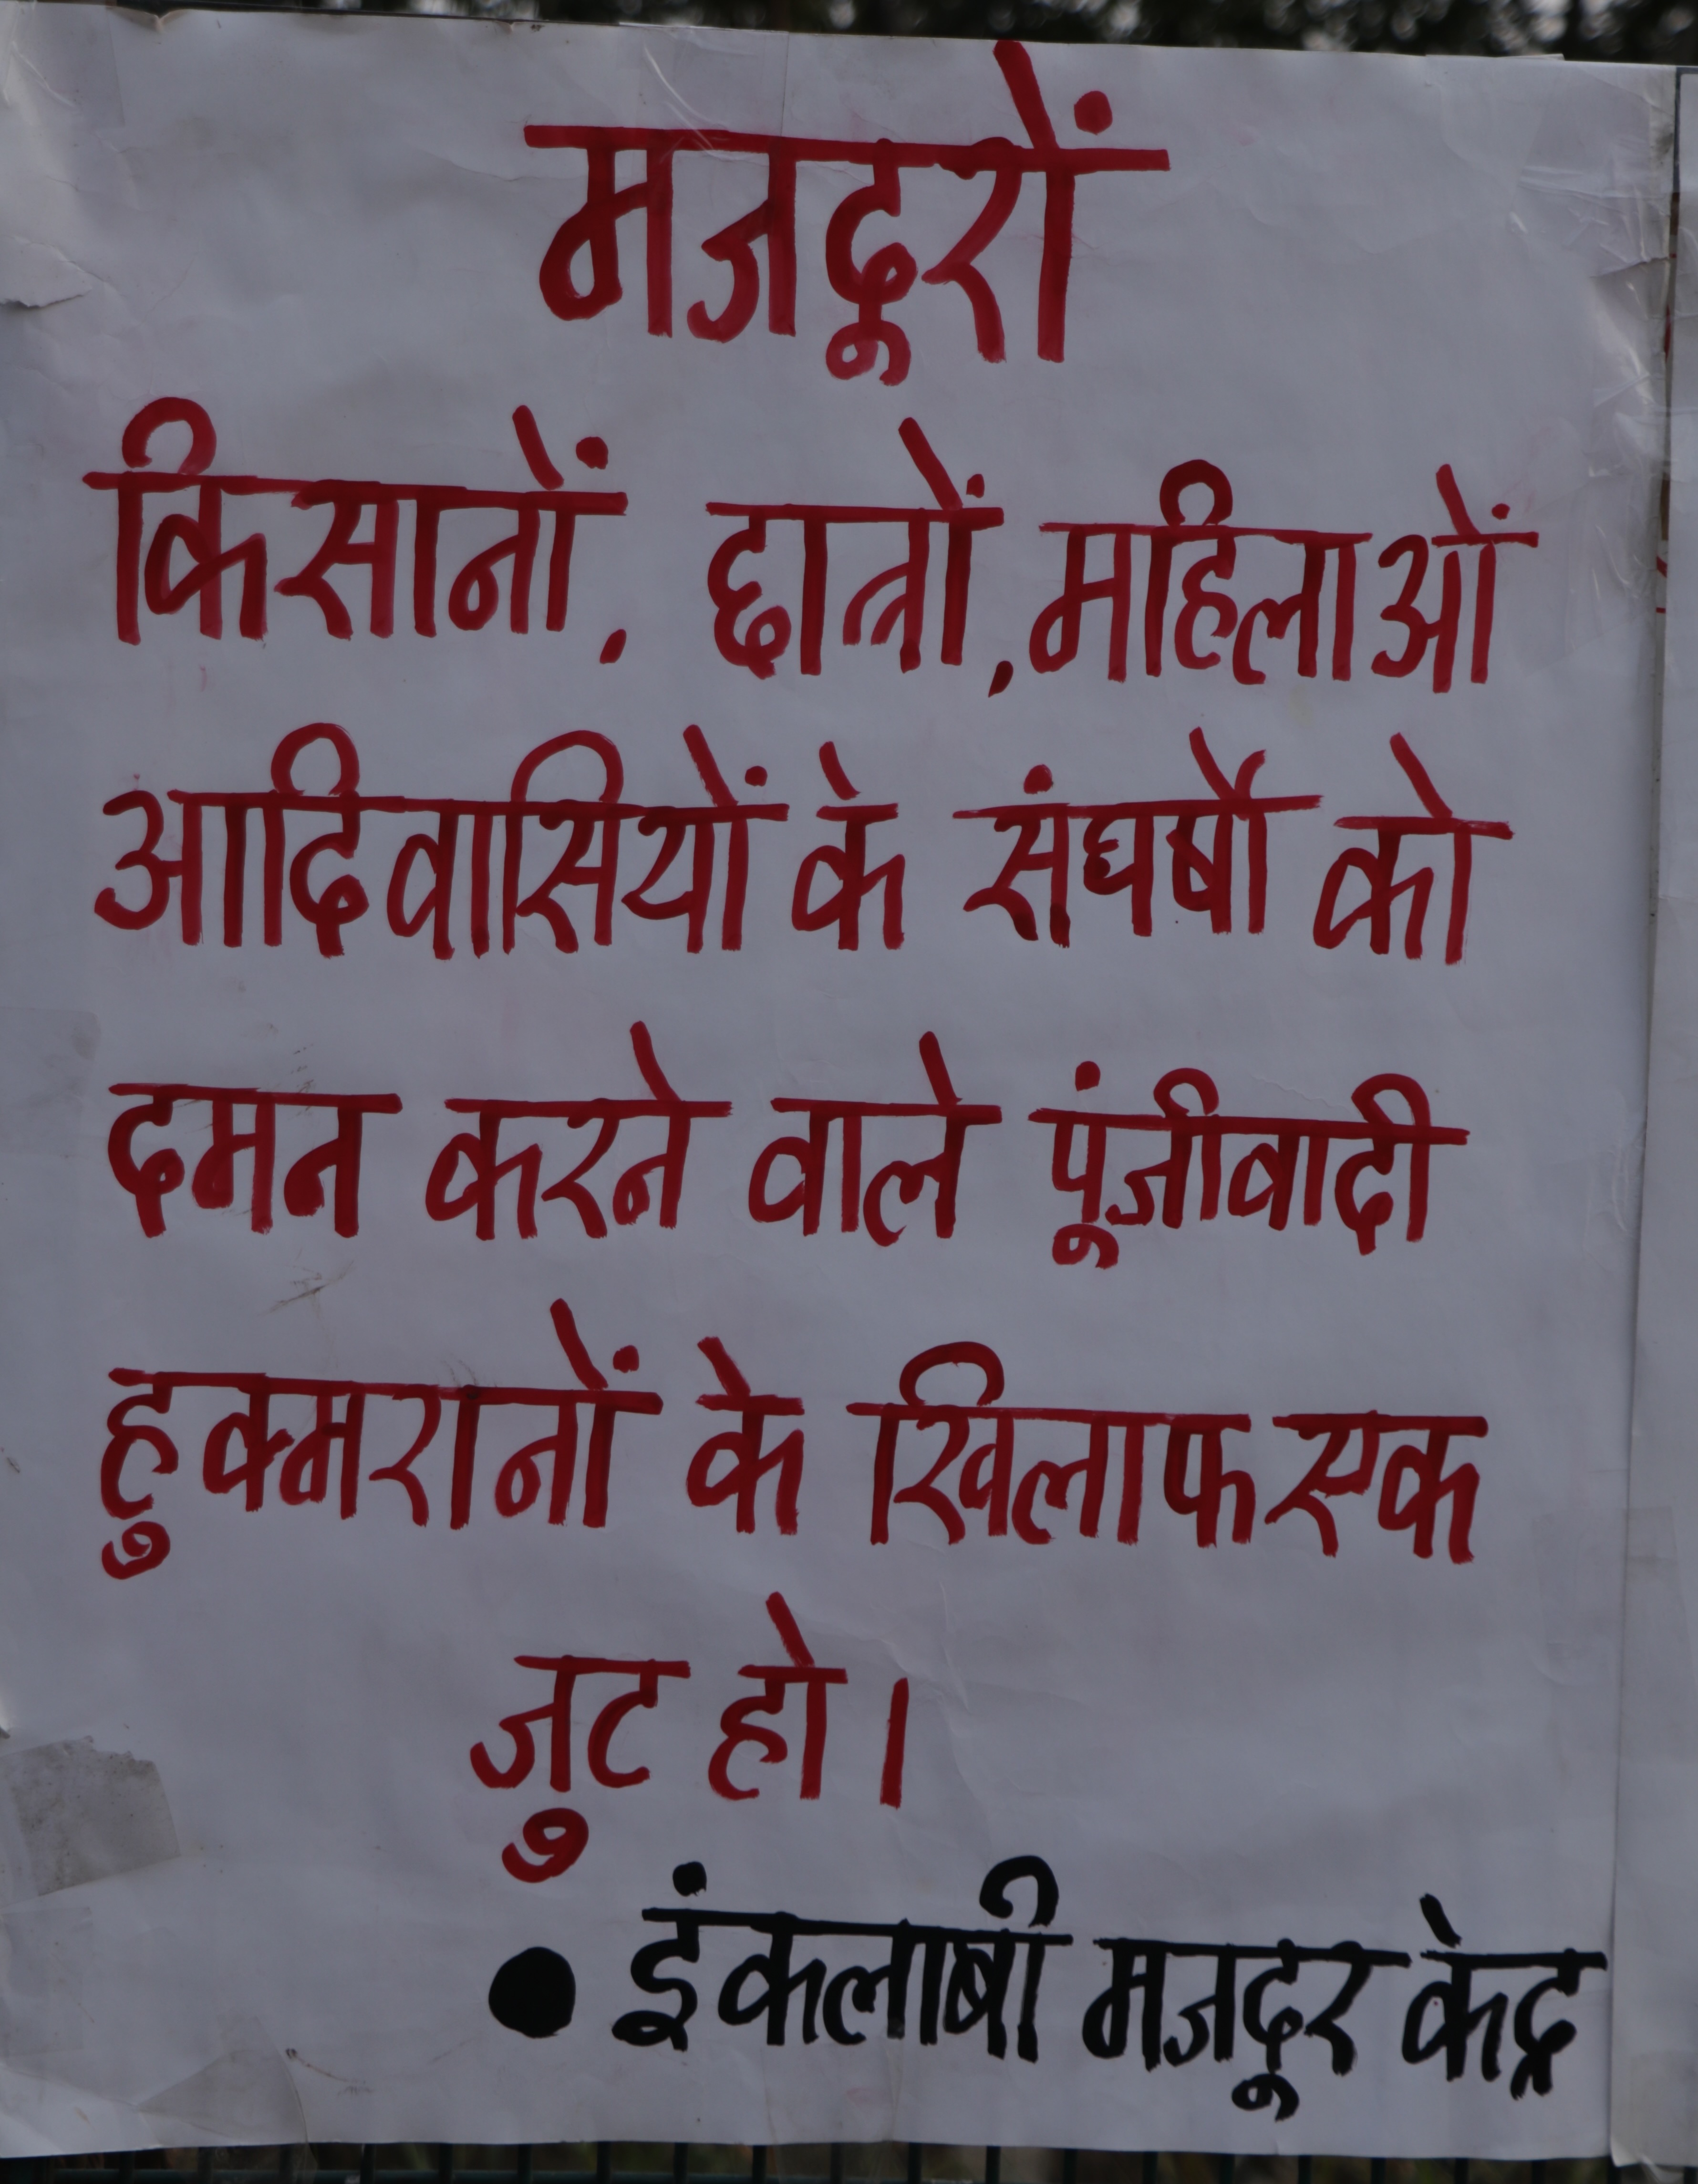 मजदूरों
किसानों, छात्रों, महिलाओं
आदिवासियों के संघर्षो को
दमन करने वाले पूंजीवादी
हुक्मरानों के खिलाफ एक
जुट हो।
• इंकलाबी मजदूर केद्र